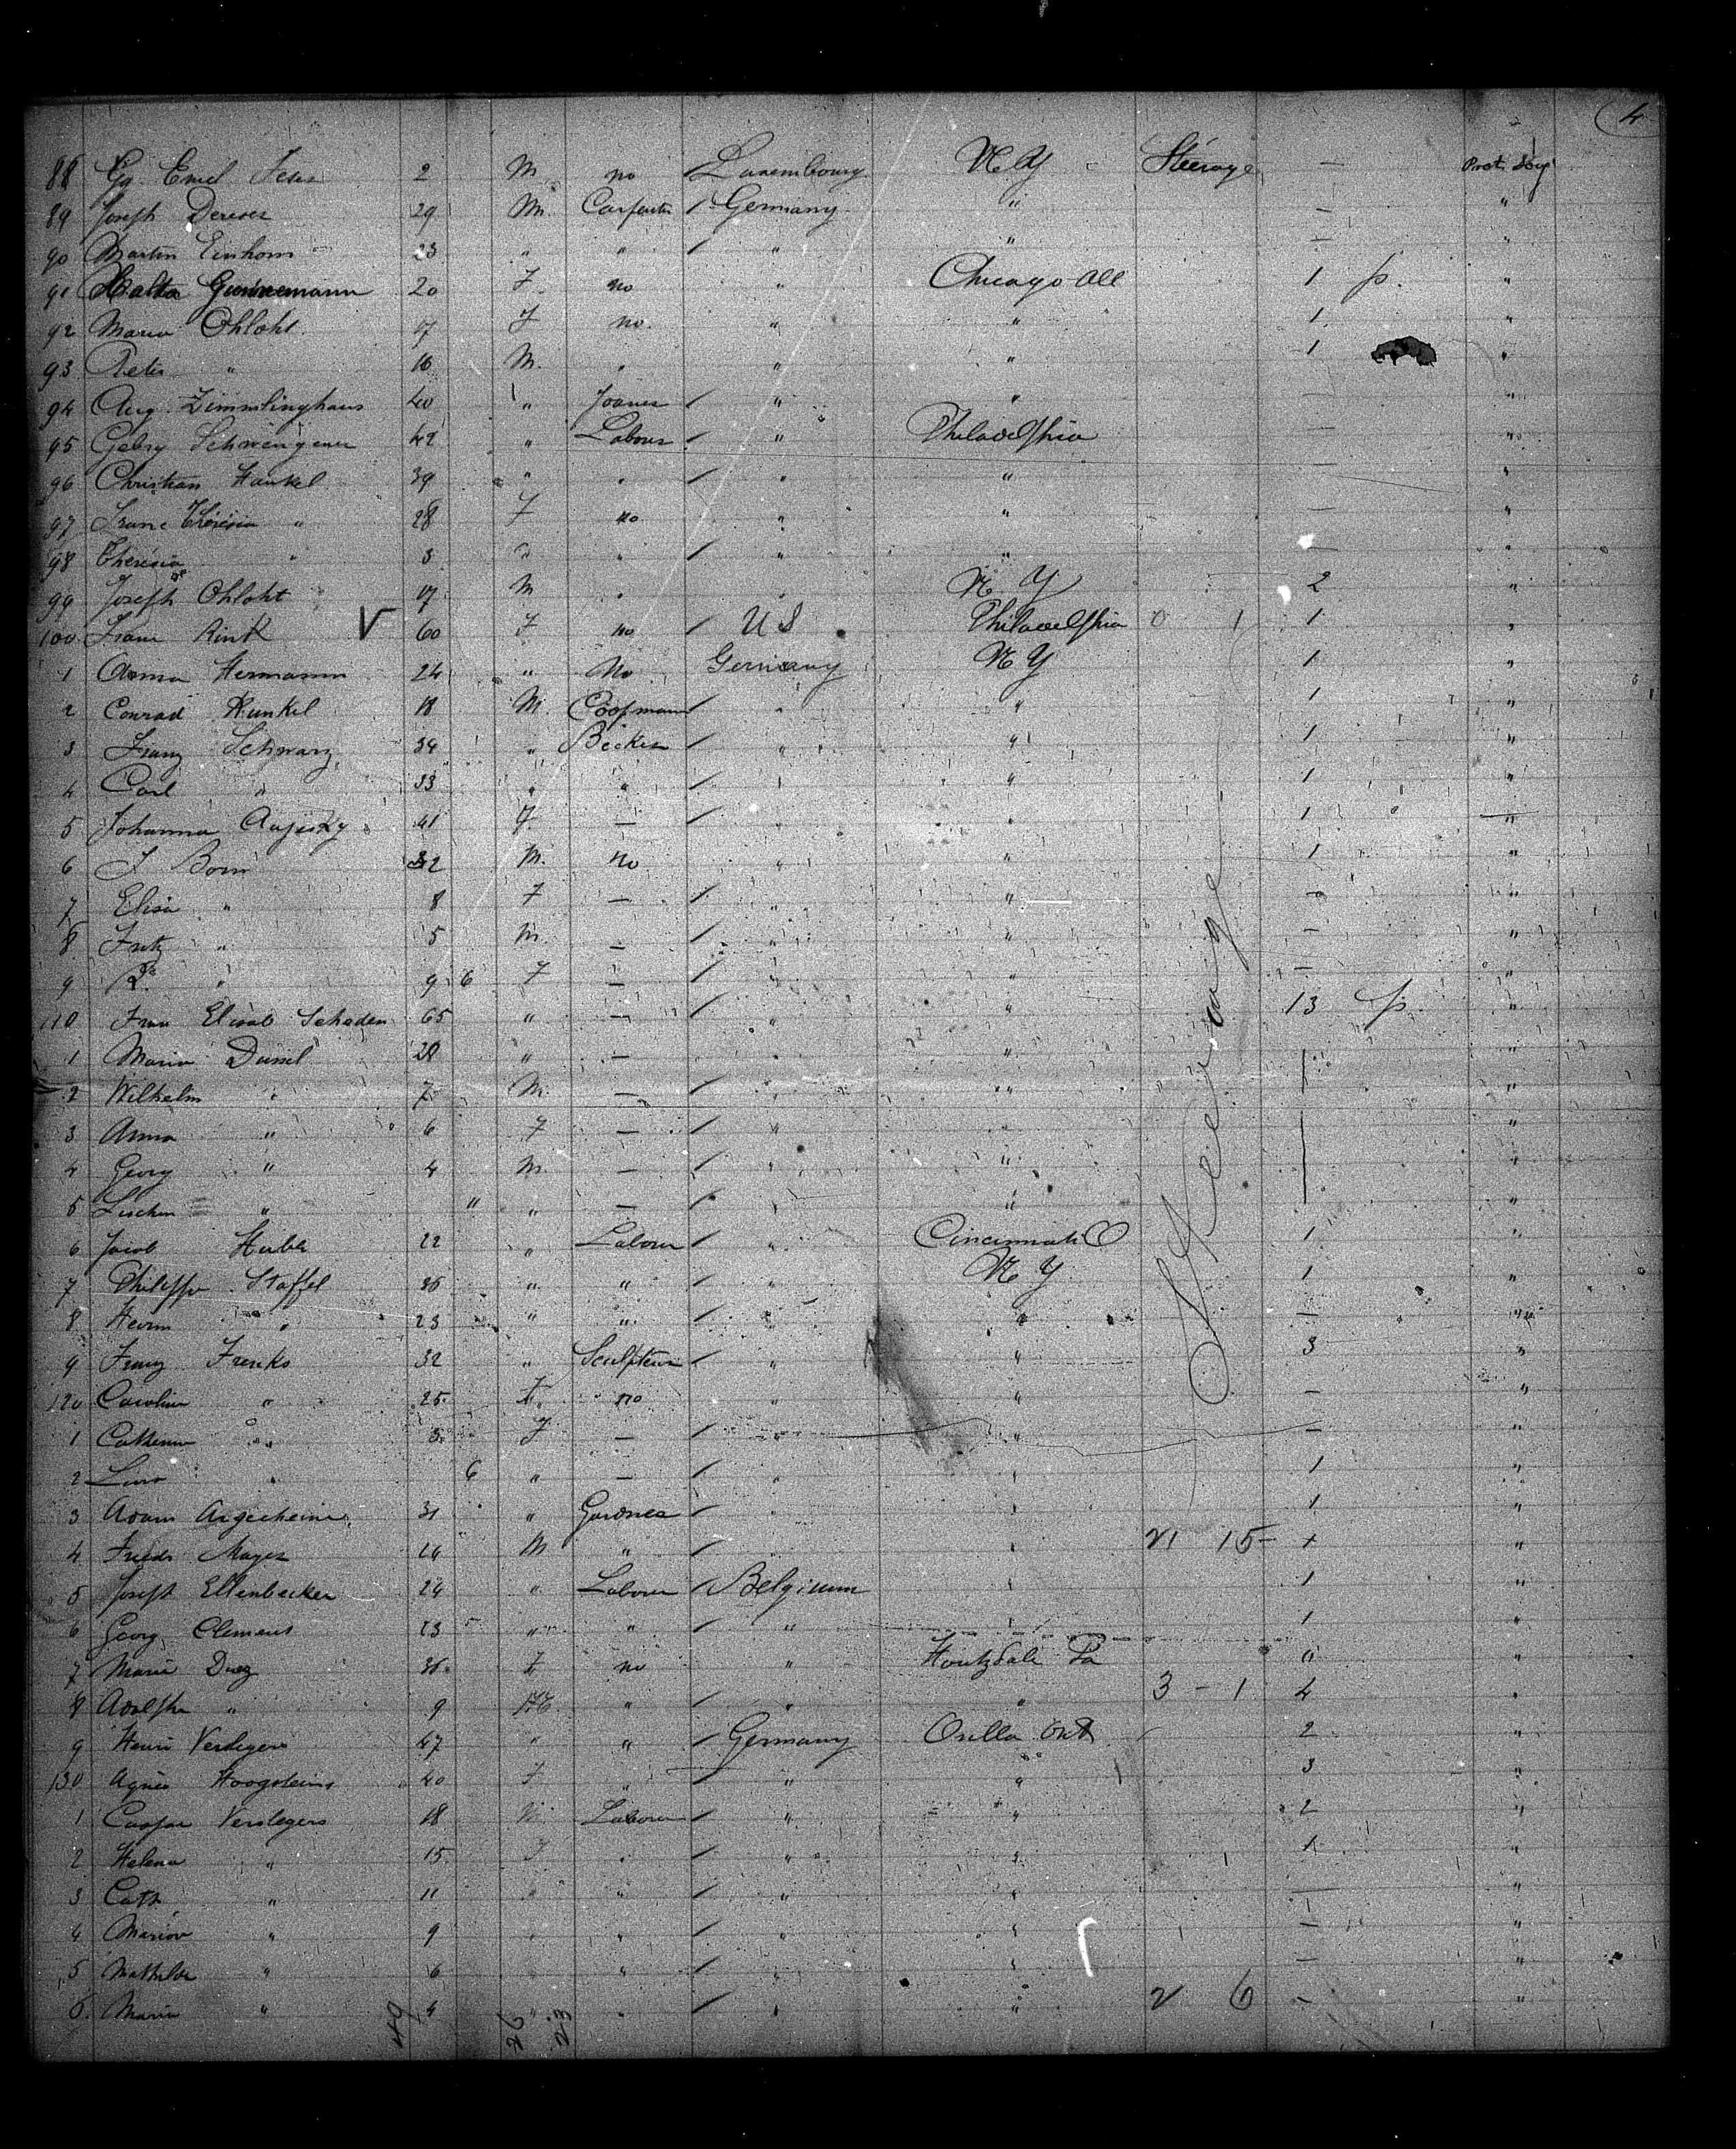 4
88 Gg. Emil 2 M no Luxembourg N Y Steerage — Prot. Sog
89 Joseph Dereser 29 M. Carpenter / Germany " — "
90 Martin Einhorn 23 " " / " " — "
91 Gunnemann 20 F. no " Chicago Ill 1 p. "
92 Maria Ohloht 17 F no. " " 1 "
93 Peter " 16 M. " " " 1 "
94 Aug. Zimmlinghaus 40 " / " " — "
95 Schwengener 42 " Labour / " Philadelphia — "
96 Christian Hankel 39 " " / " " — "
97 Theresia " 28 F no " " — "
98 Theresia " 3 " " / " " — "
99 Joseph Ohloht 17 M " " N Y 2 "
100 Frau Rink V 60 F no / U S Philadelphia 0 1 1 "
1 Anna Hermann 24 " No Germany N Y 1 "
2 Conrad Kunkel 18 M. Coopman / " " 1 "
3 Franz Schwarz 34 " Becker / " " 1 "
4 Carl " 33 " " / " " 1 "
5 Johanna 41 F. — / " " 1 "
6 J Born 32 M. no " " 1 "
7 Elisa " 8 F — / " " — "
8 Fritz " 5 M. — / " " — "
9 " 9 6 F — / " " — "
110 Frau Elisab Schaden 65 " — / " " 13 p. "
1 Maria Dussel 28 " — " " "
2 Wilhelm " 7 M. — / " " "
3 Anna " 6 F — / " " "
4 Georg " 4 M. — / " " "
5 Lischen " " " — / " " "
6 Jacob 22 " Labour / " Cincinnati O 1 "
7 Philipp Staffel 36 " " / " N Y 1 "
8 Herm " 23 " " / " " — "
9 Franz Frenks 32 " Sculpteur / " " 3 "
120 Caroline " 25 F. no " " — "
1 Catherin " 3 F — / " " — "
2 " 6 " — / " " 1 "
3 Adam 31 " Gardner / " " 1 "
4 Friedr Mayer M " / " " 21 15 "
5 Joseph Ellenbecker 24 " Labour / Belgium " 1 "
6 Georg Clemens 23 " " " " 1 "
7 Maria Duez 36 F no " Houtzdale Pa "
8 Adolphe " 9 M " / " " 3 - 1 4 "
9 Henri Verstegers 47 " " / Germany Orilla Ont 2 "
130 Agnes Hoogsteins 40 F " / " " 3 "
1 Caspar Verstegers 18 M Labour / " " 2 "
2 Helena " 15 F " / " " 1 "
3 Cath " 11 " " / " " — "
4 " 9 " " / " " — "
5 Mathilde " 6 " " / " " — "
6 Maria " 4 " " / " " 2 6 - "
Steerage
49 26 23